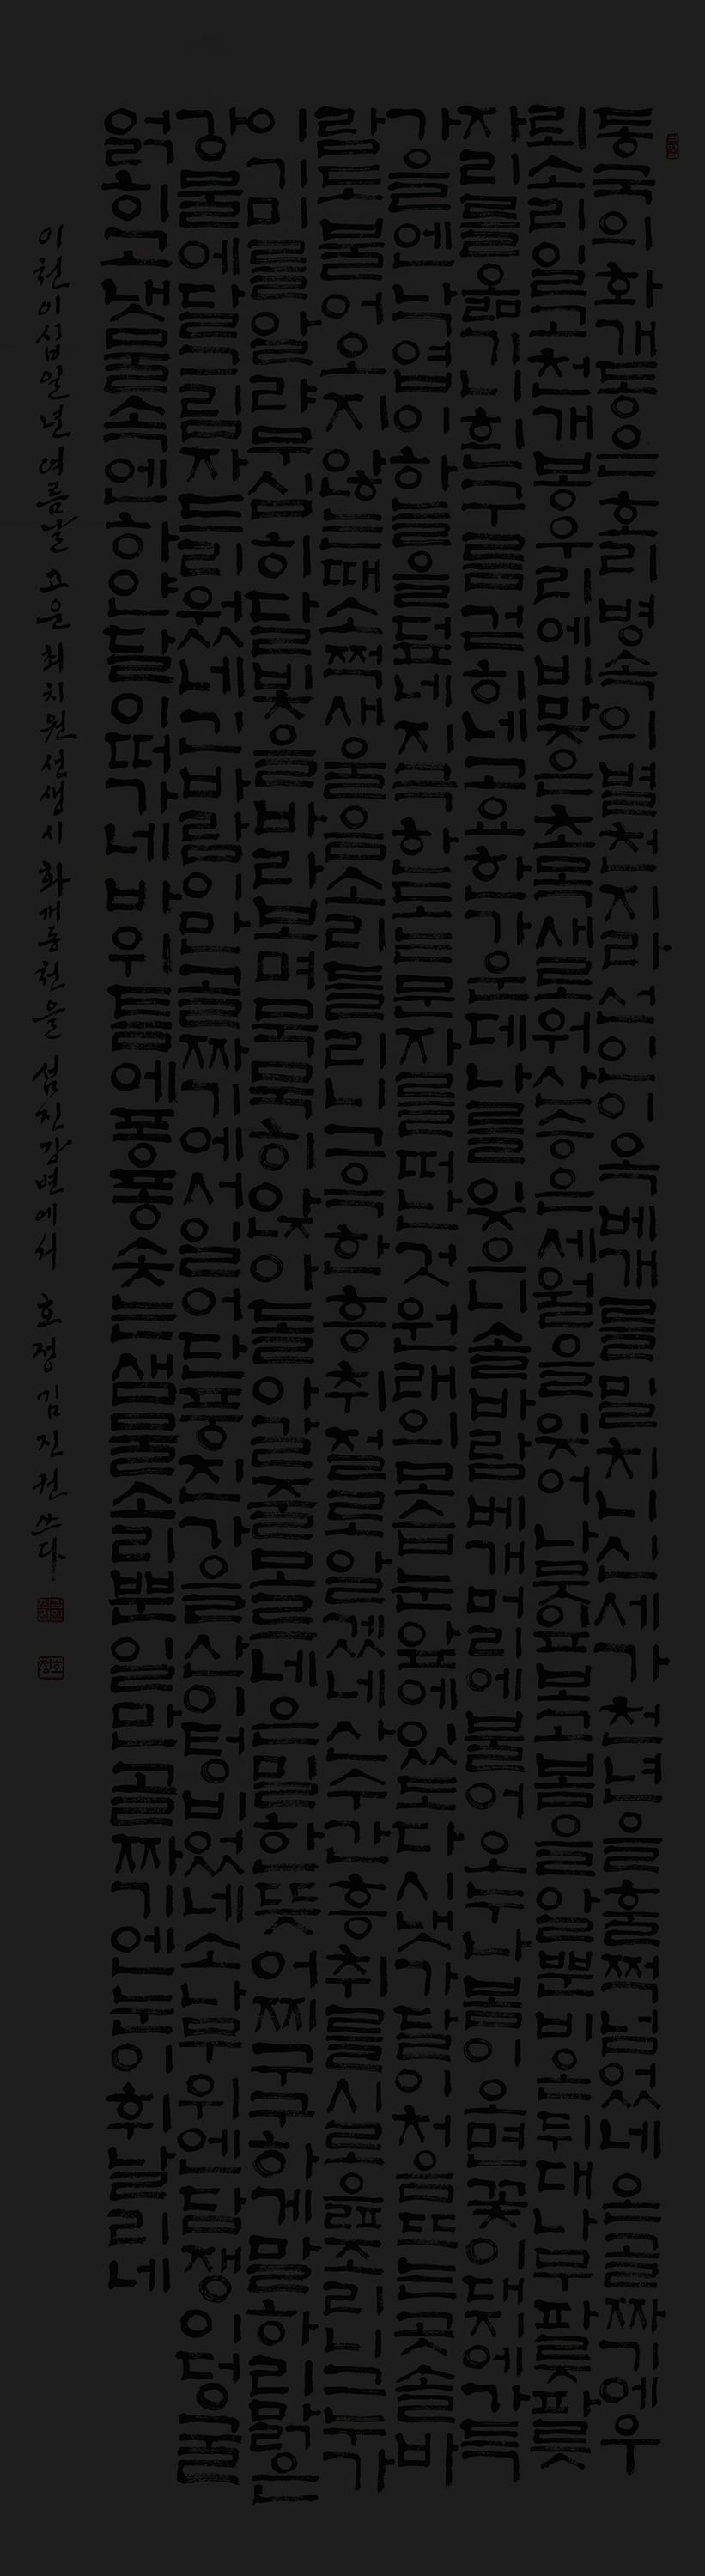 동국의화개동은호리병속의별천지라선인이옥베개를밀치니신세가천년을훌쩍넘었네온골짜기에우
뢰소리일고천개봉우리에비맞은초목새로워산승은세월을잊어나뭇잎보고봄을알뿐비온뒤대나무파릇파릇
자리를옮기니흰구름걷히네고요한가운데나를잊으니솔바람베개머리에불어오누나봄이오면꽃이대지에가득
가을엔낙엽이하늘을덮네지극한도는문자를떠난것원래의모습눈앞에있도다시냇가달이처음뜨는곳솔바
람도불어오지않는때소쩍새울음소리들리니그윽한흥취절로알겠네산수간흥취를시로읊조리니그누가
이기미를알랴무심히달빛을바라보며묵묵히앉아돌아갈줄모르네은밀한뜻어찌구구하게말하리맑은
강물에달그림자드리웠네긴바람은만골짜기에서일어단풍진가을산텅비었네소나무위엔담쟁이덩굴
얽히고냇물속엔하얀달이떠가네바위틈에퐁퐁솟는샘물소리뿐일만골짜기엔눈이휘날리네
이천이십일년 여름날 고운 최치원 선생 시 화개동천을 섬진강변에서 호정 김진권 쓰다